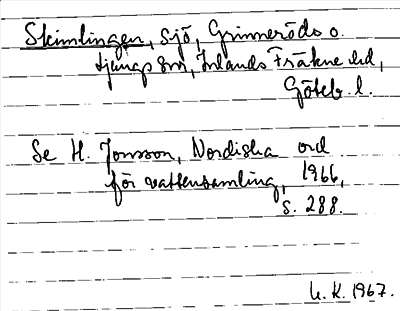 Skimlingen, sjö, Grinneröds o.
Ljungs snr, Inlands Fräkne hd,
Göteb. l.
Se H. Jonsson, Nordiska ord
för vattensamling, 1966,
s. 288.
K. 1967.